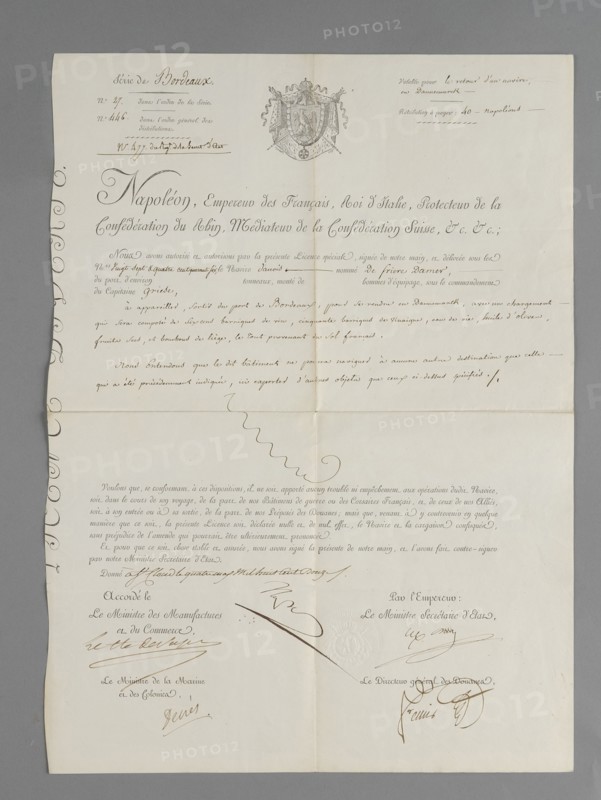 Série de Bordeaux.
N.° 27. dans l'ordre de la série.
N.° 446. dans l'ordre général des distributions.
N.° 477 du
Valable pour le retour d'un navire en Dannemarck
Rétribution à payer: 40 Napoléons
Napoléon, Empereur des Français, Roi d'Italie, Protecteur de la
Confédération du Rhin, Médiateur de la Confédération Suisse, &c. &c.;
Nous avons autorisé et autorisons par la présente Licence spéciale, signée de notre main, et délivrée sous les
N.os Vingt Sept & quatre cent quarante six le Navire Danois nommé De frère Damer,
du port d'environ tonneaux, monté de hommes d'équipage, sous le commandement
du Capitaine
à appareiller, sortir du port de Bordeaux, pour se rendre en Dannemarck, avec un chargement
qui sera composé de six cent barriques de vin, cinquante barriques de vinaigre, eau de vie, huile d'olives,
fruits secs, et bouchons de liège, le tout provenant du Sol français.
Nous entendons que le dit bâtiment ne puisse envoyé à aucune autre destination que celle
qui a été précédemment indiquée, ni exporter d'autres objets que ceux ci dessus spécifiés.
Voulons que, se conformant à ces dispositions, il ne soit apporté aucun trouble ni empêchement aux opérations dudit Navire,
soit dans le cours de son voyage, de la part de nos Bâtimens de guerre ou des Corsaires Français, et de ceux de nos Alliés,
soit à son entrée ou à sa sortie, de la part de nos Préposés des Douanes; mais que, venant à y contrevenir en quelque
manière que ce soit, la présente Licence soit déclarée nulle et de nul effet, le Navire et la cargaison confisqués,
sans préjudice de l'amende qui pourrait être ultérieurement prononcée.
Et, pour que ce soit chose stable et assurée, nous avons signé la présente de notre main, et l'avons fait contre-signer
par notre Ministre Secrétaire d'État.
Donné à St Cloud le quatre may Mil huit cent douze
Accordé le
Le Ministre des Manufactures
et du Commerce,
Par l'Empereur:
Le Ministre Secrétaire d'État,
Le Ministre de la Marine
et des Colonies,
Decrès
Le Directeur général des Douanes,
PHOTO12